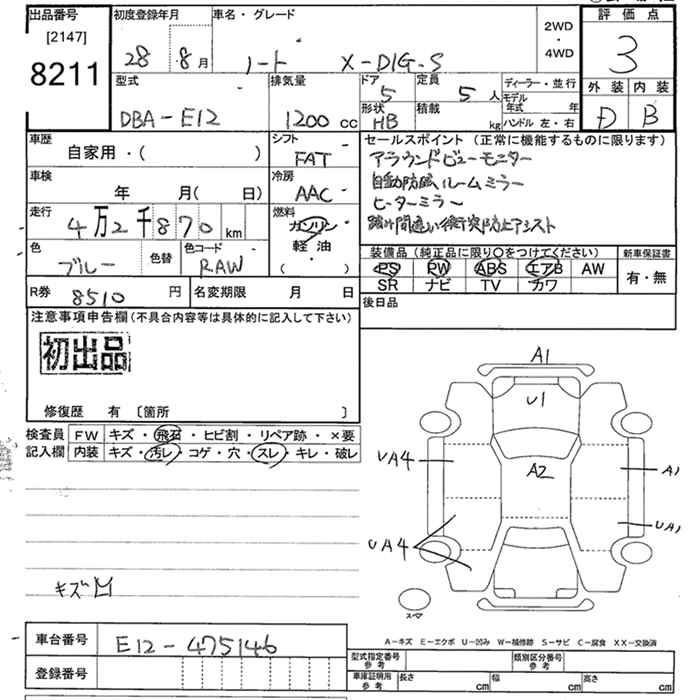 出品番号
[2147]
8211
初度登録年月
28 8月
車名・グレード
ノート X-DIG.S
2WD
・
4WD
評価点
3
外装 内装
D B
型式
DBA-E12
排気量
1200cc
ドア
5
定員
5人
形状
HB
積載
kg
ディーラー・並行
モデル
年式 年
ハンドル 左・右
車歴
自家用・( )
シフト
FAT
セールスポイント(正常に機能するものに限ります)
アラウンドビューモニター
自動防眩ルームミラー
ヒーターミラー
踏み間違い衝突防止アシスト
車検
年 月( 日)
冷房
AAC
走行
4万2千870km
燃料
ガソリン
軽油
( )
色
ブルー
色替
色コード
RAW
装備品(純正品に限り○をつけてください)
PS PW ABS エアB AW
SR ナビ TV カワ
新車保証書
有・無
R券 8510円
名変期限 月 日
後日品
注意事項申告欄(不具合内容等は具体的に記入して下さい)
初出品
修復歴 有 〔箇所 〕
検査員
記入欄
FW キズ・飛石・ヒビ割・リペア跡・×要
内装 キズ・汚レ・コゲ・穴・スレ・キレ・破レ
キズ凹
A1
U1
A2
UA4
UA4
A1
UA1
スペア
A-キズ E-エクボ U-凹み W-補修跡 S-サビ C-腐食 XX-交換済
車台番号 E12-475146
登録番号
型式指定番号
参考
類別区分番号
参考
車庫証明用
参考
長さ cm 幅 cm 高さ cm